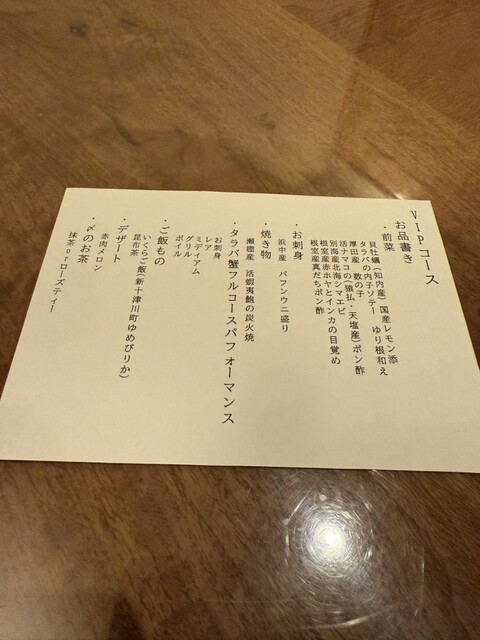 VIPコース
お品書き
・前菜
貝牡蠣(知内産)国産レモン添
タラバの内子ソテー ゆり根和え
厚田産 数の子
活ナマコの(猿払・天塩産)ポン酢
別海産北海シマエビ
根室産赤ホヤとインカの目覚め
根室産真だちポン酢
・お刺身
浜中産 バフンウニ盛り
・焼き物
瀬棚産 活蝦夷鮑の炭火焼
・タラバ蟹フルコースパフォーマンス
お刺身
レア
ミディアム
グリル
ボイル
・ご飯もの
いくらご飯(新十津川町ゆめぴりか)
昆布茶
・デザート
赤肉メロン
・〆のお茶
抹茶orローズティー